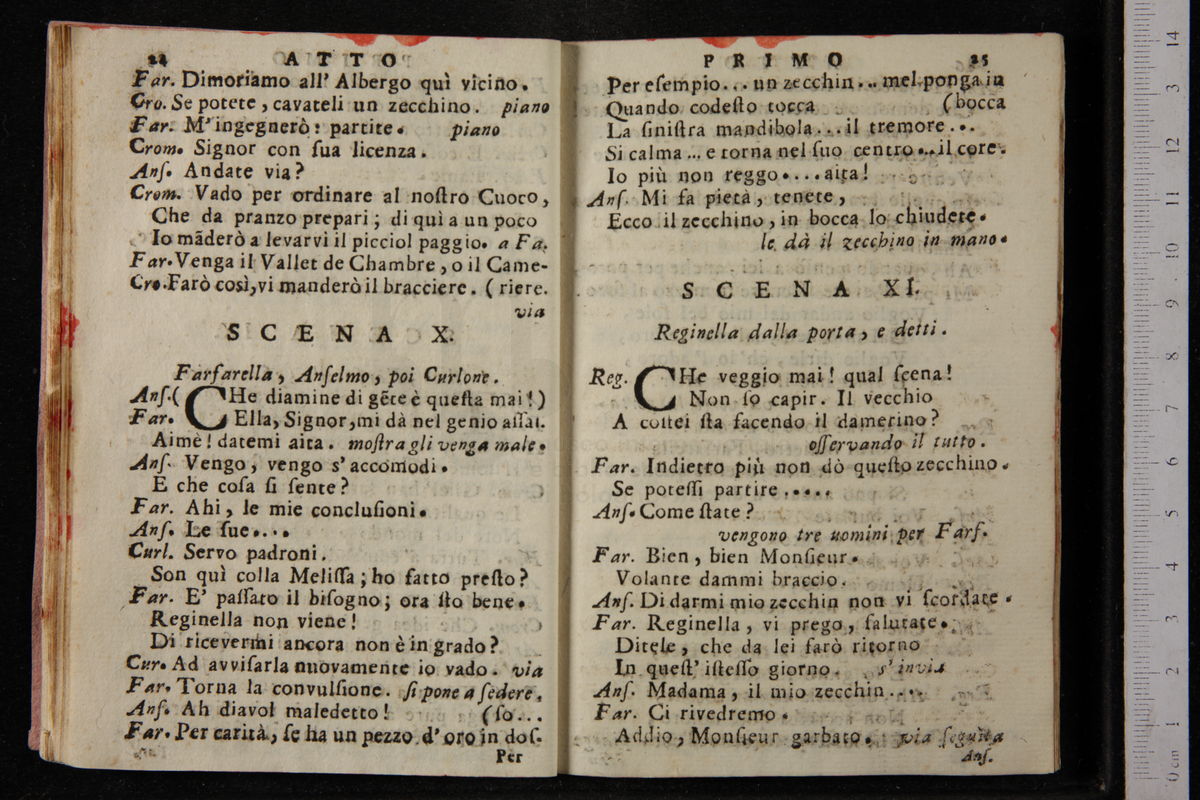 24 ATTO
Far. Dimoriamo all' Albergo quì vicino.
Cro. Se potete, cavateli un zecchino. piano
Far. M'ingegnerò: partite. piano
Crom. Signor con ſua licenza.
Anſ. Andate via?
Crom. Vado per ordinare al noſtro Cuoco,
Che da pranzo prepari; di quì a un poco
Io mãderò a levarvi il picciol paggio. a Fa.
Far. Venga il Vallet de Chambre, o il Came-
Cro. Farò così, vi manderò il bracciere. (riere.
via
SCENA X.
Farfarella, Anſelmo, poi Curlone.
Anſ. (CHe diamine di gẽte è queſta mai!)
Far. Ella, Signor, mi dà nel genio aſſai.
Aimè! datemi aita. moſtra gli venga male.
Anſ. Vengo, vengo s'accomodi.
E che coſa ſi ſente?
Far. Ahi, le mie concluſioni.
Anſ. Le ſue....
Curl. Servo padroni.
Son quì colla Meliſſa; ho fatto preſto?
Far. E' paſſato il biſogno; ora ſto bene.
Reginella non viene!
Di ricevermi ancora non è in grado?
Cur. Ad avviſarla nuovamente io vado. via
Far. Torna la convulſione. ſi pone a ſedere.
Anſ. Ah diavol maledetto! (ſo...
Far. Per carità, ſe ha un pezzo d'oro in doſ-
Per
PRIMO 25
Per eſempio... un zecchin... mel ponga in
Quando codeſto tocca (bocca
La ſiniſtra mandibola... il tremore...
Si calma... e torna nel ſuo centro... il core.
Io più non reggo.... aita!
Anſ. Mi fa pietà, tenete,
Ecco il zecchino, in bocca lo chiudete.
le dà il zecchino in mano.
SCENA XI.
Reginella dalla porta, e detti.
Reg. CHe veggio mai! qual ſcena!
Non ſo capir. Il vecchio
A coſtei ſta facendo il damerino?
oſſervando il tutto.
Far. Indietro più non dò queſto zecchino.
Se poteſſi partire.....
Anſ. Come ſtate?
vengono tre uomini per Farf.
Far. Bien, bien Monſieur.
Volante dammi braccio.
Anſ. Di darmi mio zecchin non vi ſcordate.
Far. Reginella, vi prego, ſalutate.
Ditele, che da lei farò ritorno
In queſt' iſteſſo giorno. s'invia
Anſ. Madama, il mio zecchin....
Far. Ci rivedremo.
Addio, Monſieur garbato. via ſeguita
Anſ.
0 cm 1 2 3 4 5 6 7 8 9 10 11 12 13 14